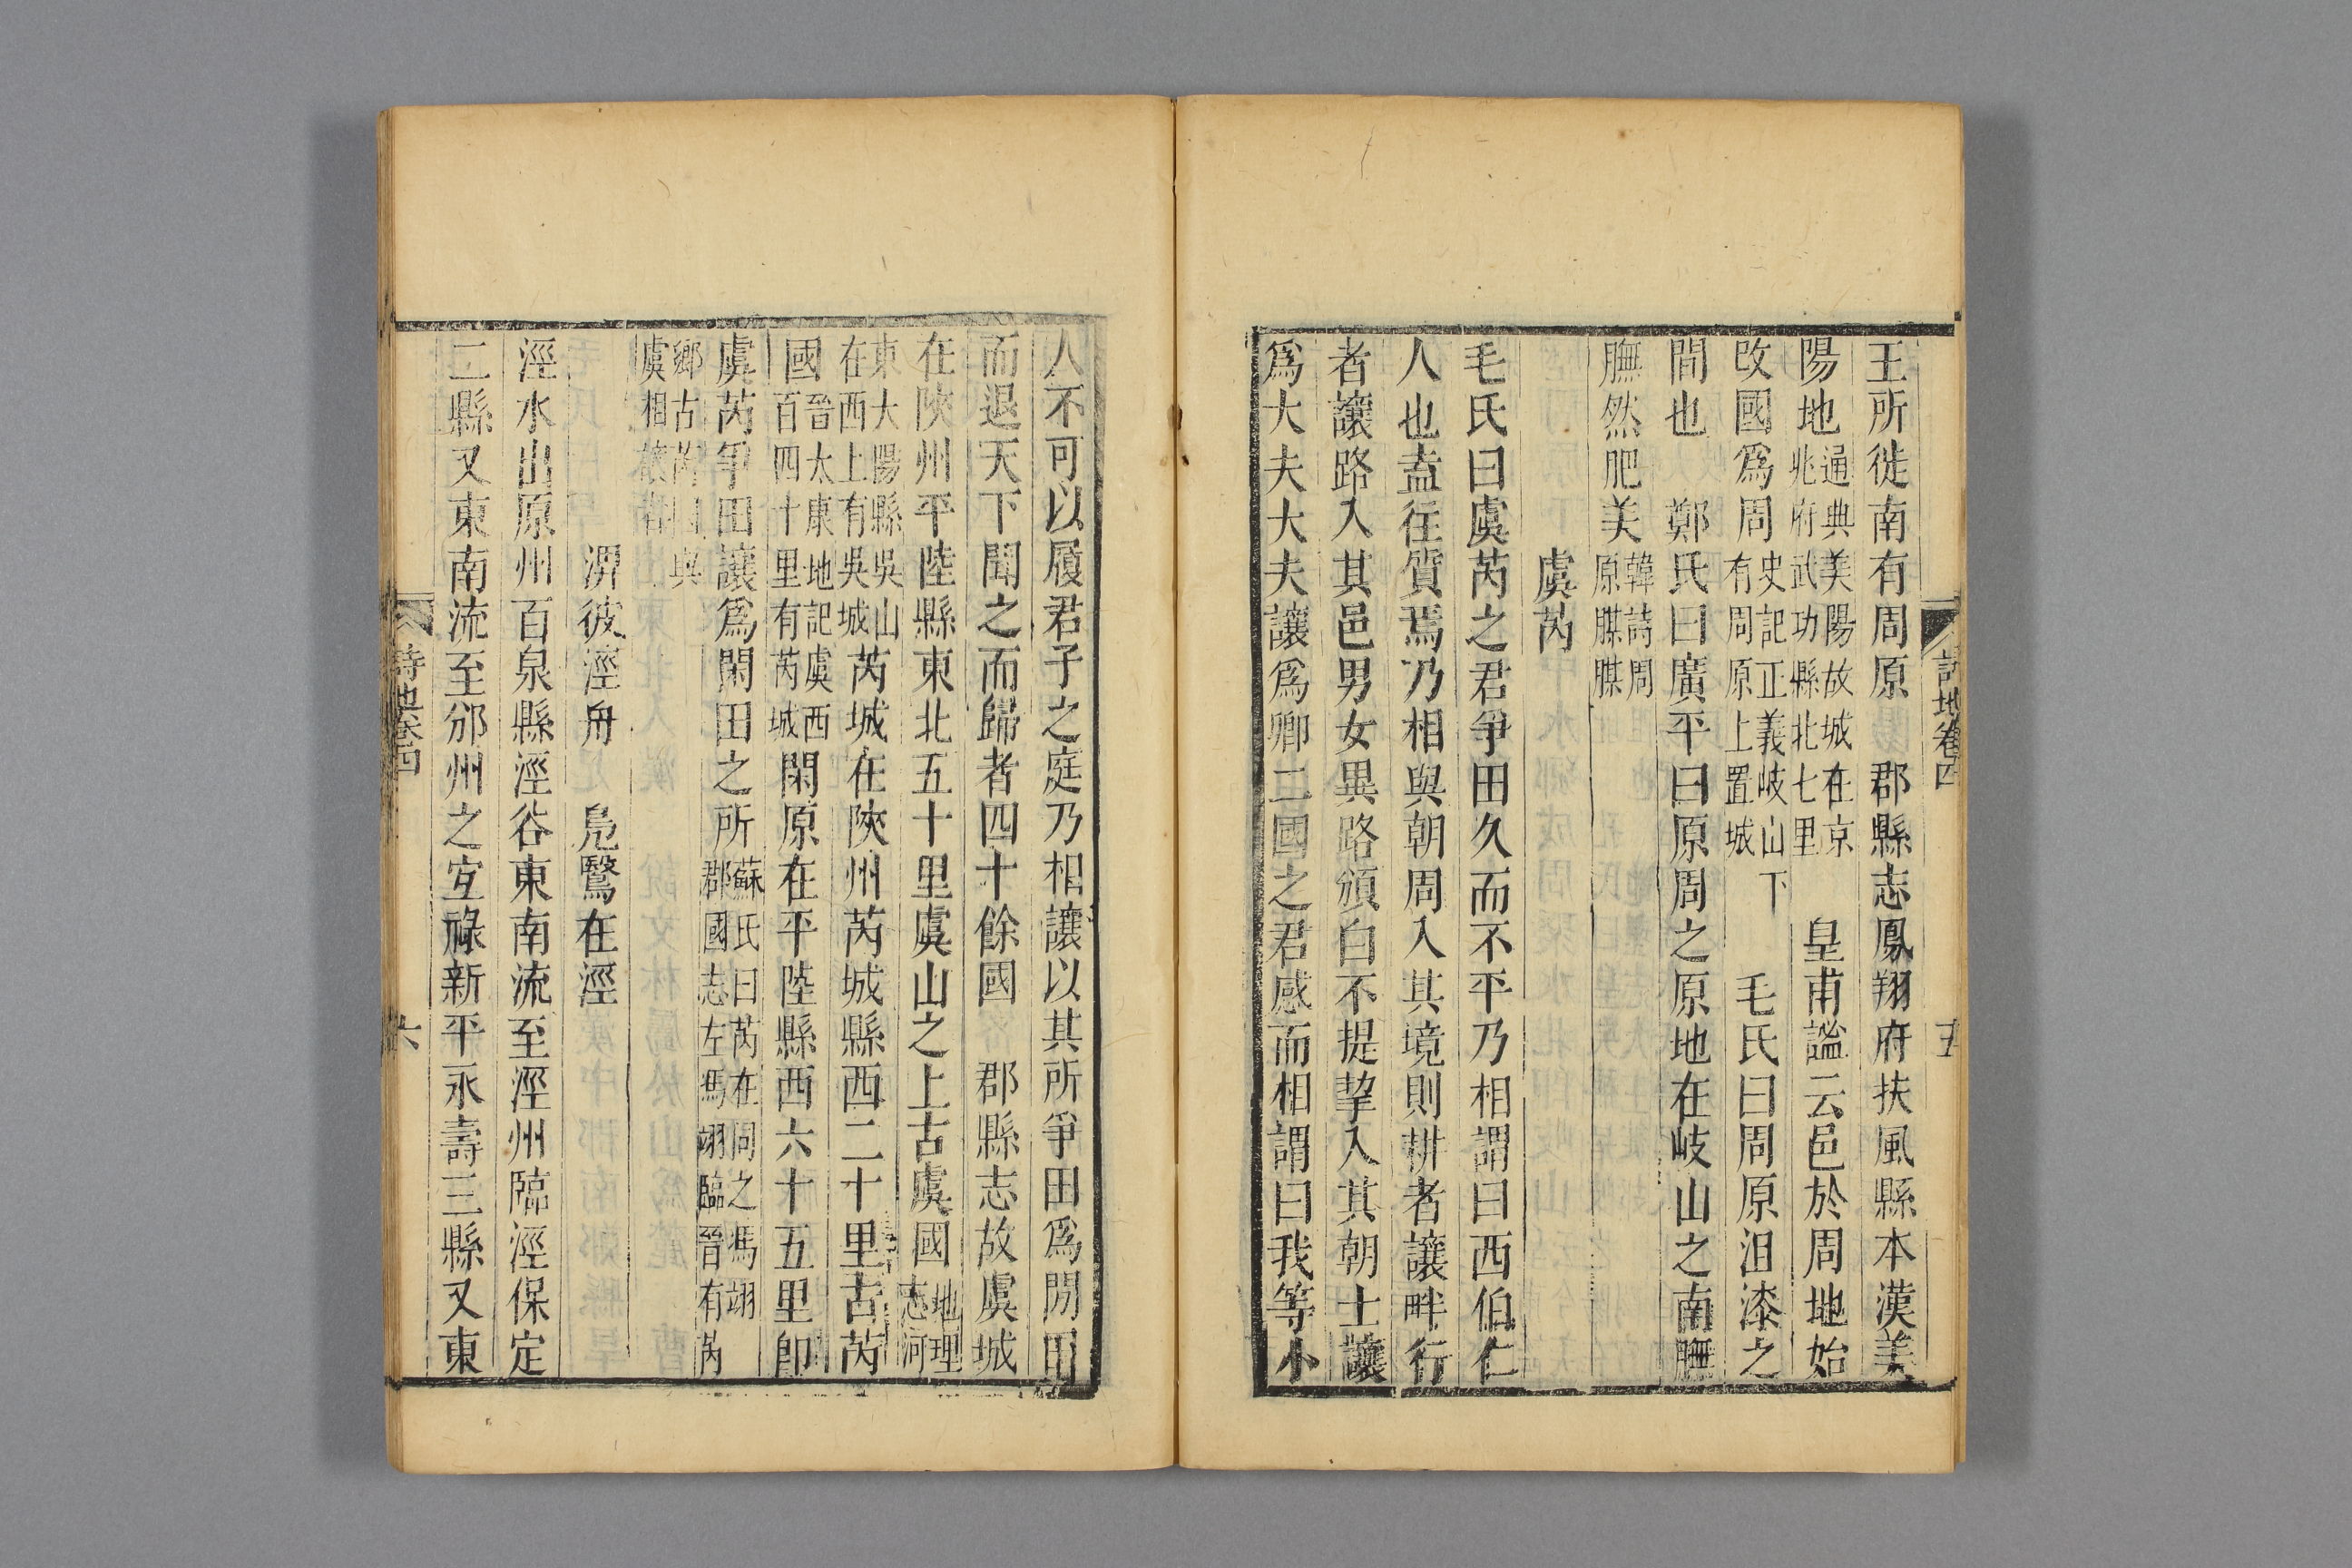 詩地卷四 五
王所徙南有周原 郡縣志鳳翔府扶風縣本漢美
陽地通典美陽故城在京兆府武功縣北七里 皇甫謐云邑於周地始
改國爲周史記正義岐山下有周原上置城 毛氏曰周原沮漆之
間也 鄭氏曰廣平曰原周之原地在岐山之南膴
膴然肥美韓詩周原腜腜
虞芮
毛氏曰虞芮之君爭田久而不平乃相謂曰西伯仁
人也盍往質焉乃相與朝周入其境則耕者讓畔行
者讓路入其邑男女異路頒白不提挈入其朝士讓
爲大夫大夫讓爲卿二國之君感而相謂曰我等小
人不可以履君子之庭乃相讓以其所爭田爲閒田
而退天下聞之而歸者四十餘國 郡縣志故虞城
在陝州平陸縣東北五十里虞山之上古虞國地理志河
東大陽縣吳山在西上有吳城芮城在陝州芮城縣西二十里古芮
國晉太康地記虞西百四十里有芮城閒原在平陸縣西六十五里卽
虞芮爭田讓爲閑田之所蘇氏曰芮在同之馮翊郡國志左馮翊臨晉有芮
鄉古芮國與虞相讓者
渭彼涇舟 鳧鷖在涇
涇水出原州百泉縣涇谷東南流至涇州臨涇保定
二縣又東南流至邠州之宜祿新平永壽三縣又東
詩地卷四 六